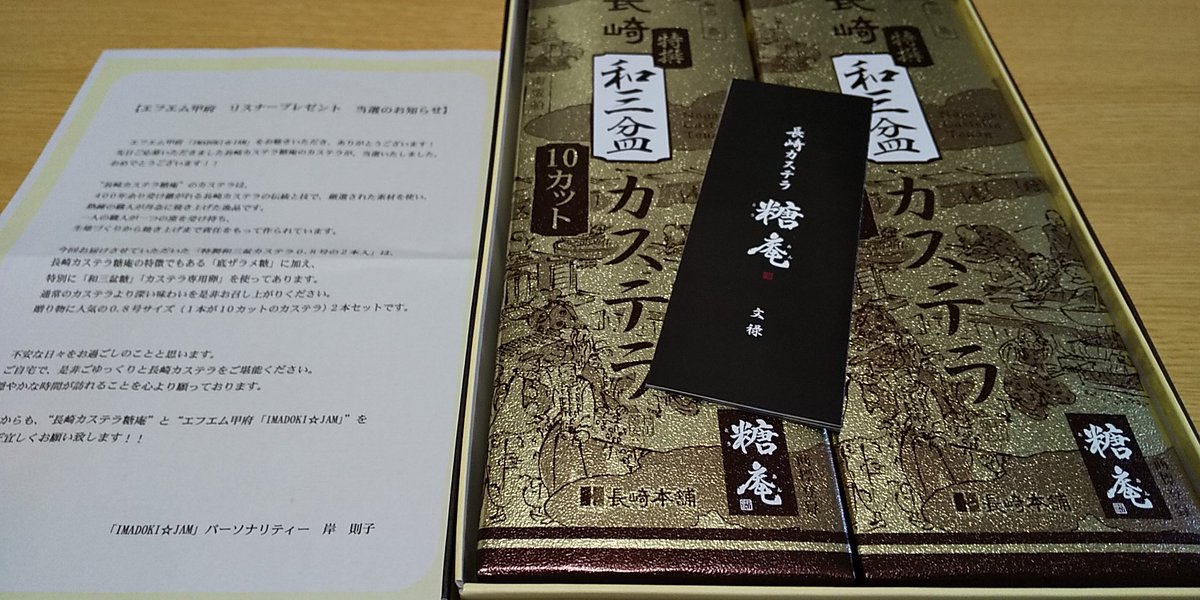 【エフエム甲府 リスナープレゼント 当選のお知らせ】
エフエム甲府「IMADOKI☆JAM」をお聴きいただき、ありがとうございます！
先日ご応募いただきました長崎カステラ糖庵のカステラが、当選いたしました。
おめでとうございます！！
"長崎カステラ糖庵"のカステラは、
400年余り受け継がれる長崎カステラの伝統と技で、厳選された素材を使い、
熟練の職人が丹念に焼き上げた逸品です。
一人の職人が一つの窯を受け持ち、
生地づくりから焼き上げまで責任をもって作られています。
今回お届けさせていただいた「特製和三盆カステラ0.8号の2本入」は、
長崎カステラ糖庵の特徴でもある「底ザラメ糖」に加え、
特別に「和三盆糖」「カステラ専用卵」を使ってあります。
通常のカステラより深い味わいを是非お召し上がりください。
贈り物に人気の0.8号サイズ（1本が10カットのカステラ）2本セットです。
不安な日々をお過ごしのことと思います。
ご自宅で、是非ごゆっくりと長崎カステラをご堪能ください。
穏やかな時間が訪れることを心より願っております。
からも、"長崎カステラ糖庵"と"エフエム甲府「IMADOKI☆JAM」"を
宜しくお願い致します！！
「IMADOKI☆JAM」パーソナリティー 岸 則子
長崎
特撰
和三盆
カステラ
10カット
糖庵
長崎本舗
長崎カステラ
糖庵
文禄
長崎
特撰
和三盆
カステラ
糖庵
長崎本舗